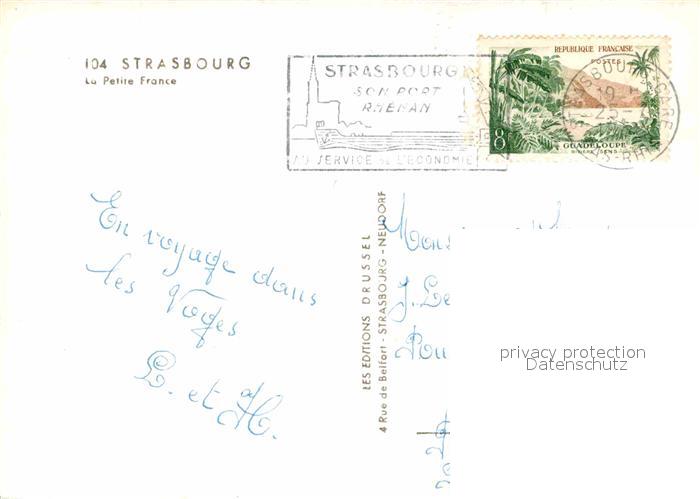 104 STRASBOURG
La Petite France
STRASBOURG
SON PORT
RHÉNAN
AU SERVICE DE L'ECONOMIE
REPUBLIQUE FRANÇAISE
POSTES
8F
GUADELOUPE
RIVIERE SENS
STRASBOURG-GARE
BAS-RHIN
En voyage dans
les Vosges
L. et H.
LES EDITIONS DRUSSEL
4 Rue de Belfort - STRASBOURG - NEUDORF
privacy protection
Datenschutz